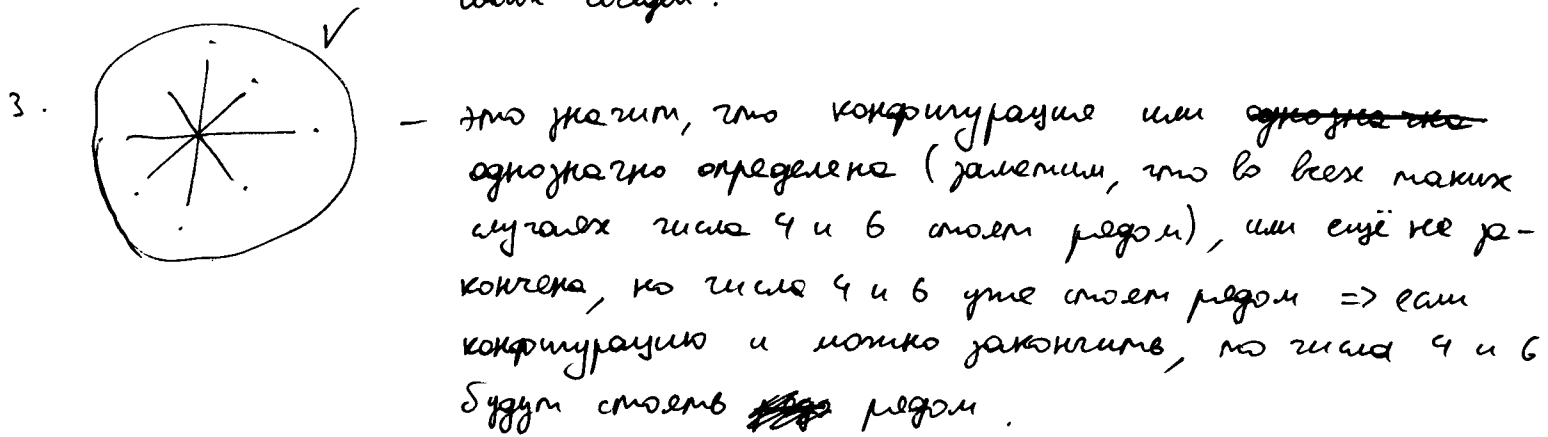 3.
– это значит, что конфигурация или однозначно
однозначно определена (заметим, что во всех таких
случаях числа 4 и 6 стоят рядом), или ещё не за-
кончена, но числа 4 и 6 уже стоят рядом => если
конфигурацию и можно закончить, то числа 4 и 6
будут стоять рядом.